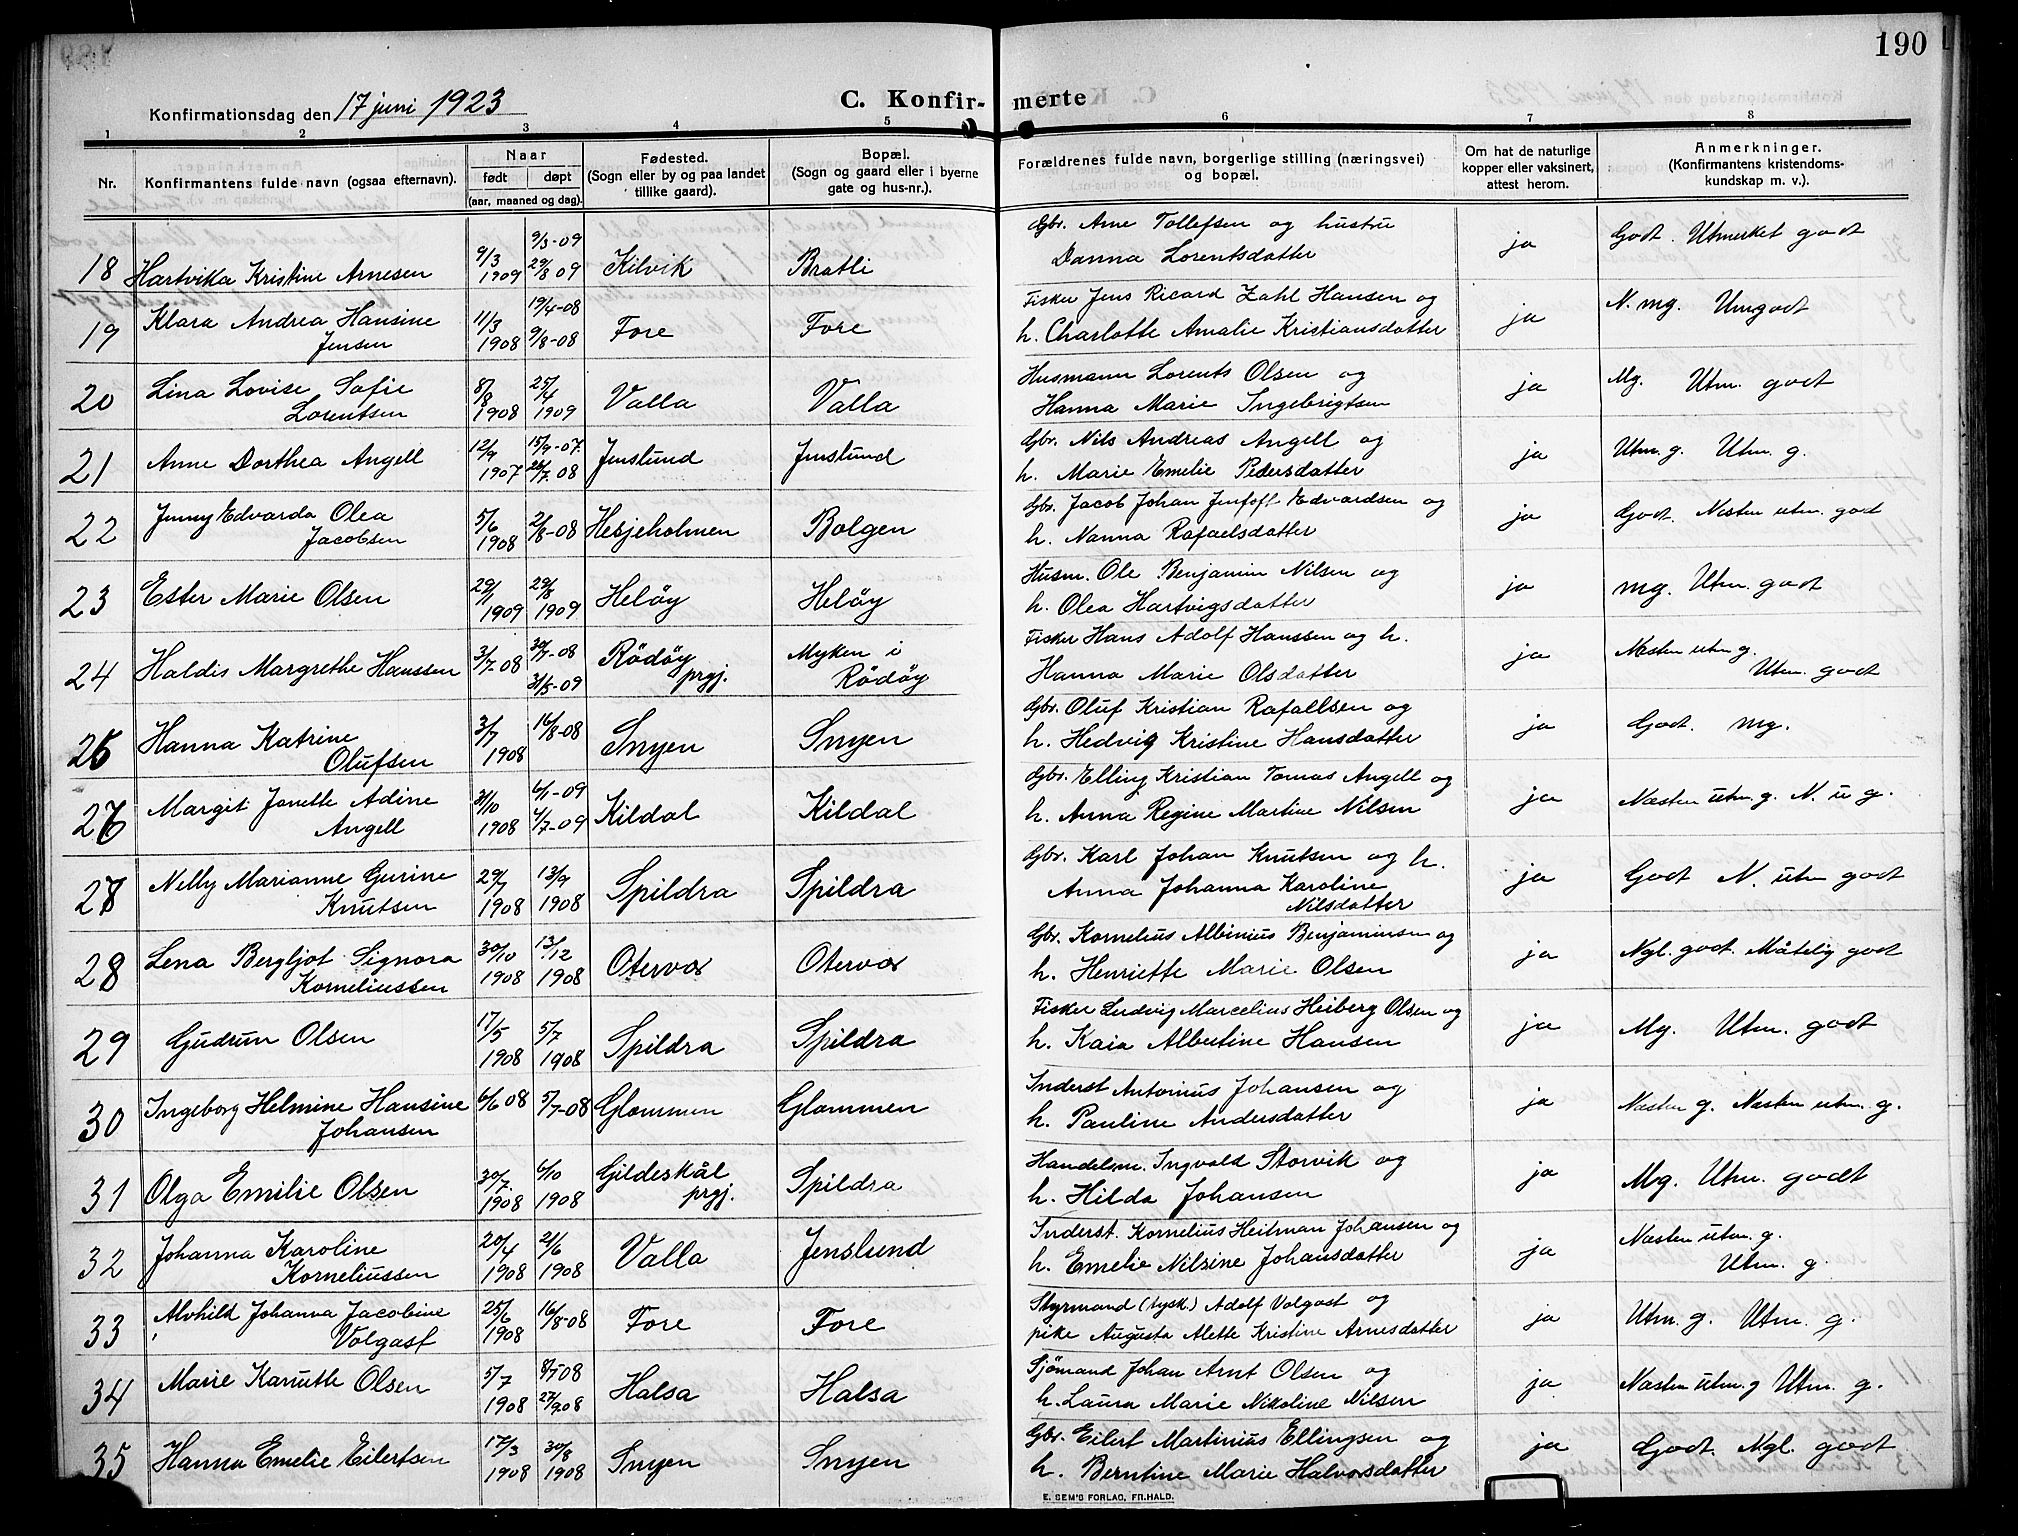 190
Konfirmationsdag den 17 juni 1923
C. Konfirmerte
1 2 3 4 5 6 7 8
Nr. Konfirmantens fulde navn (ogsaa efternavn). Naar født døpt (aar, maaned og dag). Fødested. (Sogn eller by og paa landet tillike gaard). Bopæl. (Sogn og gaard eller i byerne gate og hus-nr.). Forældrenes fulde navn, borgerlige stilling (næringsvei) og bopæl. Om hat de naturlige kopper eller vaksinert, attest herom. Anmerkninger. (Konfirmantens kristendoms-kundskap m. v.).
18 Hartvika Kristine Arnesen 9/3 1909 9/3-09 29/8 09 Kilvik Bratli Gbr. Arne Tollefsen og hustru Danna Lorentsdatter ja Godt. Utmerket godt
19 Klara Andrea Hansine Jensen 11/3 1908 19/4-08 9/8-08 Fore Fore Fisker Jens Ricard Zahl Hansen og h. Charlotte Amalie Kristiansdatter ja N. mg. Utmgodt
20 Lina Lovise Sofie Lorentsen 8/8 1908 25/4 1909 Valla Valla Husmann Lorents Olsen og Hanna Marie Ingebrigtsen ja Mg. Utm. godt
21 Anne Dorthea Angell 12/9 1907 15/9-07. 26/7-08 Jenslund Jenslund Gbr. Nils Andreas Angell og h. Marie Emelie Pedersdatter ja Utm. g. Utm. g.
22 Jenny Edvarda Olea Jacobsen 5/6 1908 2/8-08 Hesjeholmen Bolgen Gbr. Jacob Johan Jentoft Edvardsen og h. Nanna Rafaelsdatter ja Godt. Næsten utm. godt
23 Ester Marie Olsen 29/1 1909 29/8 1909 Heløy Heløy Husm. Ole Benjamin Nilsen og h. Olea Hartvigsdatter ja mg. Utm. godt
24 Haldis Margrethe Hanssen 3/7-08 30/7-08 31/5-09 Rödöy prgj. Myken i Rödöy Fisker Hans Adolf Hanssen og h. Hanna Marie Olsdatter ja Næsten utm g. Utm. godt
25 Hanna Katrine Olufsen 3/7 1908 16/8-08 Snyen Snyen Gbr. Oluf Kristian Rafaelsen og h. Hedvig Kristine Hansdatter ja Godt. mg.
26 Margit Jonette Adine Angell 31/10 1908 6/1-09 4/7-09 Kildal Kildal Gbr. Elling Kristian Tomas Angell og h. Anna Regine Martine Nilsen ja Næsten utm. g. N. u g.
27 Nelly Marianne Gurine Knutsen 29/7 1908 13/9 1908 Spildra Spildra Gbr. Karl Johan Knutsen og h. Anna Johanna Karoline Nilsdatter ja Godt N. utm godt
28 Lena Bergljot Signora Korneliussen 30/10 1908 13/12 1908 Otervær Otervær Gbr. Kornelius Albinius Benjaminsen og h. Henriette Marie Olsen ja Ngl. godt. Måtelig godt
29 Gudrun Olsen 17/5 1908 5/7 1908 Spildra Spildra Fisker Ludvig Marcelius Heiberg Olsen og h. Kaia Albertine Hansen ja Mg. Utm. godt
30 Ingeborg Helmine Hansine Johansen 6/6 08 5/7-08 Glommen Glommen Inderst Antonius Johansen og h. Pauline Andersdatter ja Næsten g. Næsten utm. g.
31 Olga Emilie Olsen 30/7. 1908 6/10 1908 Gildeskål prgj. Spildra Handelsm. Ingvald Storvik og h. Hilda Johansen ja Mg. Utm. godt
32 Johanna Karoline Korneliussen 20/4 1908 21/6 1908 Valla Jenslund Inderst. Kornelius Heitman Johansen og h. Emelie Nilsine Johansdatter ja Næsten utm. g. Utm. g.
33 Alvhild Johanna Jacobine Volgast 25/6 1908 16/8-08 Fore Fore Styrmand (tysk.) Adolf Volgast og pike Augusta Alette Kristine Arnesdatter ja Utm. g. Utm. g.
34 Marie Kanutte Olsen 5/7 1908 8/7-08 27/9 08 Halsa Halsa Sjömand Johan Arnt Olsen og h. Laura Marie Nikoline Nilsen ja Næsten utm. g Utm. g.
35 Hanna Emelie Eilertsen 17/3 1908 30/8 1908 Snyen Snyen Gbr. Eilert Martinius Ellingsen og h. Berntine Marie Halvorsdatter ja Godt. Ngl. godt
E. SEM'S FORLAG, FR.HALD.